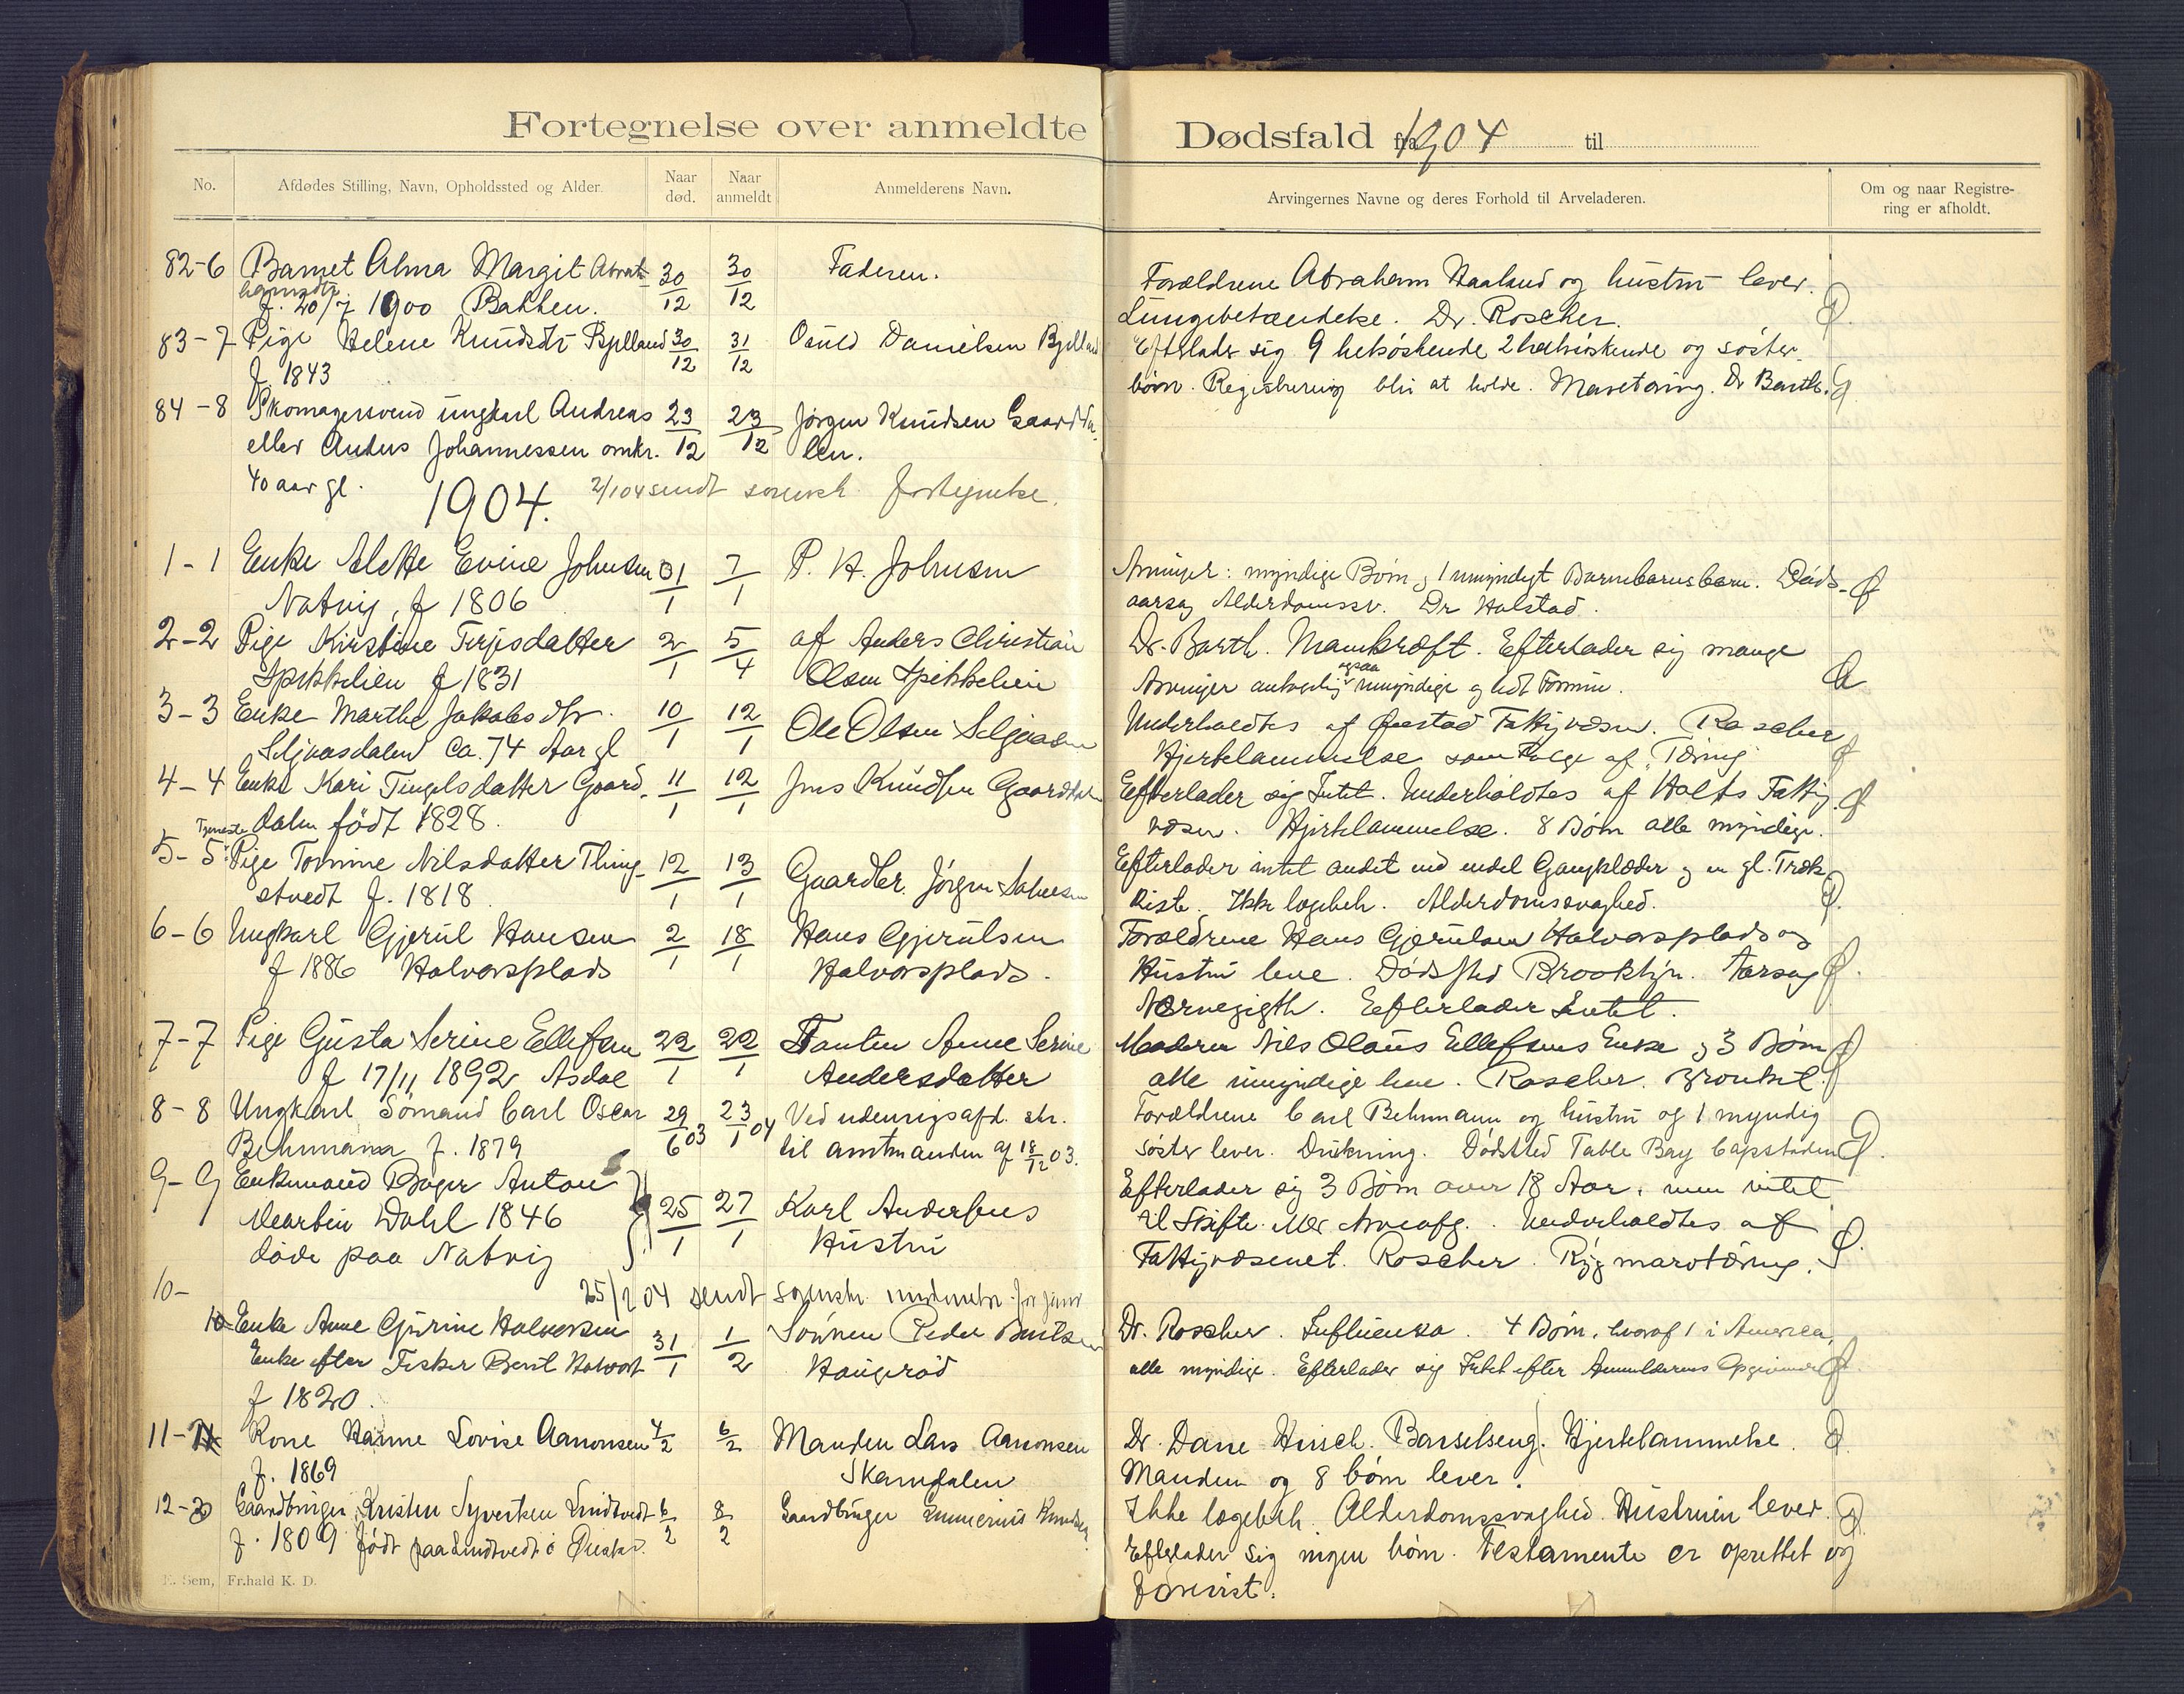 Fortegnelse over anmeldte
No. Afdødes Stilling, Navn, Opholdssted og Alder. Naar død. Naar anmeldt Anmelderens Navn.
82-6 Barnet Alma Margit Abra- 30/12 30/12 Faderen.
hamsdtr.
f. 20/7 1900 Bakken.
83-7 Pige Helene Knudsdtr Bjelland 30/12 31/12 Osuld Danielsen Bjelland
f. 1843
84-8 Skomagersvend ungkarl Andreas 23/12 23/12 Jørgen Knudsen Gaardda-
eller Anders Johannessen omkr. len.
40 aar gl.
1904. 2/1 04 sendt sorensk. fortegnelse.
1-1 Enke Alette Evine Johnsen 31/1 7/1 P. A. Johnsen
Natvig, f 1806
2-2 Pige Kirstine Terjesdatter 2/1 5/4 af Anders Christian
Spikkelien f 1831 Olsen Spikkelien
3-3 Enke Marthe Jakobsdtr. 10/1 12/1 Ole Olsen Seljaasen
Seljaasdalen Ca. 74 Aar gl
4-4 Enke Kari Tingelsdatter Gaard- 11/1 12/1 Jens Knudsen Gaarddalen
dalen født 1828.
Tjeneste
5-5 Pige Tomine Nilsdatter Thing- 12/1 13/1 Gaardbr. Jörgen
stvedt f. 1818
6-6 Ungkarl Gjerul Hansen 2/1 18/1 Hans Gjerulsen
f 1886 Halvorsplads Halvorsplads.
7-7 Pige Gusta Serine Ellefsen 22/1 22/1 Tanten Anne Serine
f 17/11 1892 Asdal Andersdatter
8-8 Ungkarl Sömand Carl Oscar 29/6 03 23/1 04 Ved udenrigsafd. skr.
Behrmann f. 1879 til amtmanden af 18/12 03.
9-9 Enkemand Bager Anton
Martin Dahl 1846 25/1 27/1 Karl Andersens
døde paa Natvig Hustru
10- 25/1 04 sendt sorensk. for januar
10 Enke Anne Gurine Halvorsen 31/1 1/2 Sönnen Peder Bentsen
Enke efter Fisker Bent Halvors Haugerød
f 1820.
11-11 Kone Hanne Lovise Aanonsen 4/2 6/2 Manden Lars Aanonsen
f. 1869 Skarvdalen
12- Gaardbruger Kristen Syvertsen Lindtvedt 6/2 8/2 Gaardbruger Knudsen
f. 1809 født paa Lindtvedt i Øiestad.
E. Sem, Fr.hald K. D.
Dødsfald fra 1904 til
Arvingernes Navne og deres Forhold til Arveladeren. Om og naar Registrering er afholdt.
Forældrene Abraham Haaland og hustru lever.
Lungebetændelse. Dr. Roscher.
Efterlader sig 9 helsöskende 2 halvsöskende og söster-
börn. Registrering blir at holde. Mavetæring. Dr Barth.
Arvinger: myndige Börn og 1 umyndigt Barnebarnsbarn. Døds-
aarsag Alderdomssv. Dr Halstad.
Dr. Barth. Mavekræft. Efterlader sig mange
Arvinger antagelig ogsaa umyndige og lidt Formue.
Underholdtes af Øiestad Fattigvæsen. Roscher
Hjertelammelse som Følge af Tæring
Efterlader sig Intet. Underholdtes af Holts Fattig-
væsen. Hjertelammelse. 8 Börn alle myndige.
Efterlader intet andet end endel Gangklæder og en gl. Træk-
kiste. Ikke lægebeh. Alderdomssvaghed.
Forældrene Hans Gjerulsen Halvorsplads og
Hustru leve. Dödssted Brooklyn. Aarsag
Nervegigth. Efterlader Intet.
Moderen Nils Olaus Ellefsens Enke og 3 Börn
alle umyndige leve. Roscher. Bronkit.
Forældrene Carl Behrmann og hustru og 1 myndig
söster lever. Drukning. Dödssted Table Bay Capstaden
Efterlader sig 3 Börn over 18 Aar, men intet
til Skifte eller Arveafg. Underholdtes af
Fattigvæsenet. Roscher. Rygmarvtæring.
Dr. Roscher. Influensa. 4 Börn, hvoraf 1 i Amerika,
alle myndige. Efterlader sig Intet efter Anmelderens Opgivende
Dr. Dane Hirsch. Barselseng. Hjertelammelse.
Manden og 8 börn lever.
Ikke lægebeh. Alderdomssvaghed. Hustruen lever.
Efterlader sig ingen börn. Testamente er oprettet og
forevist.